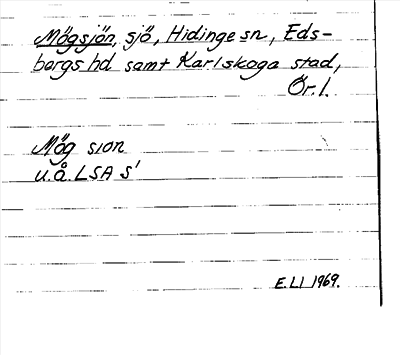 Mögsjön, sjö, Hidinge sn, Eds-
bergs hd samt Karlskoga stad,
Ör. l.
Mög sion
u.å. LSA S'
E. LI 1969.